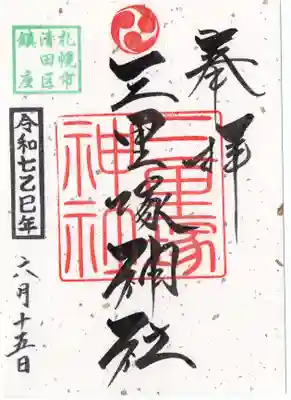 奉拝
三里塚神社
三里塚神社
札幌市
清田区
鎮座
令和七乙巳年
六月十五日